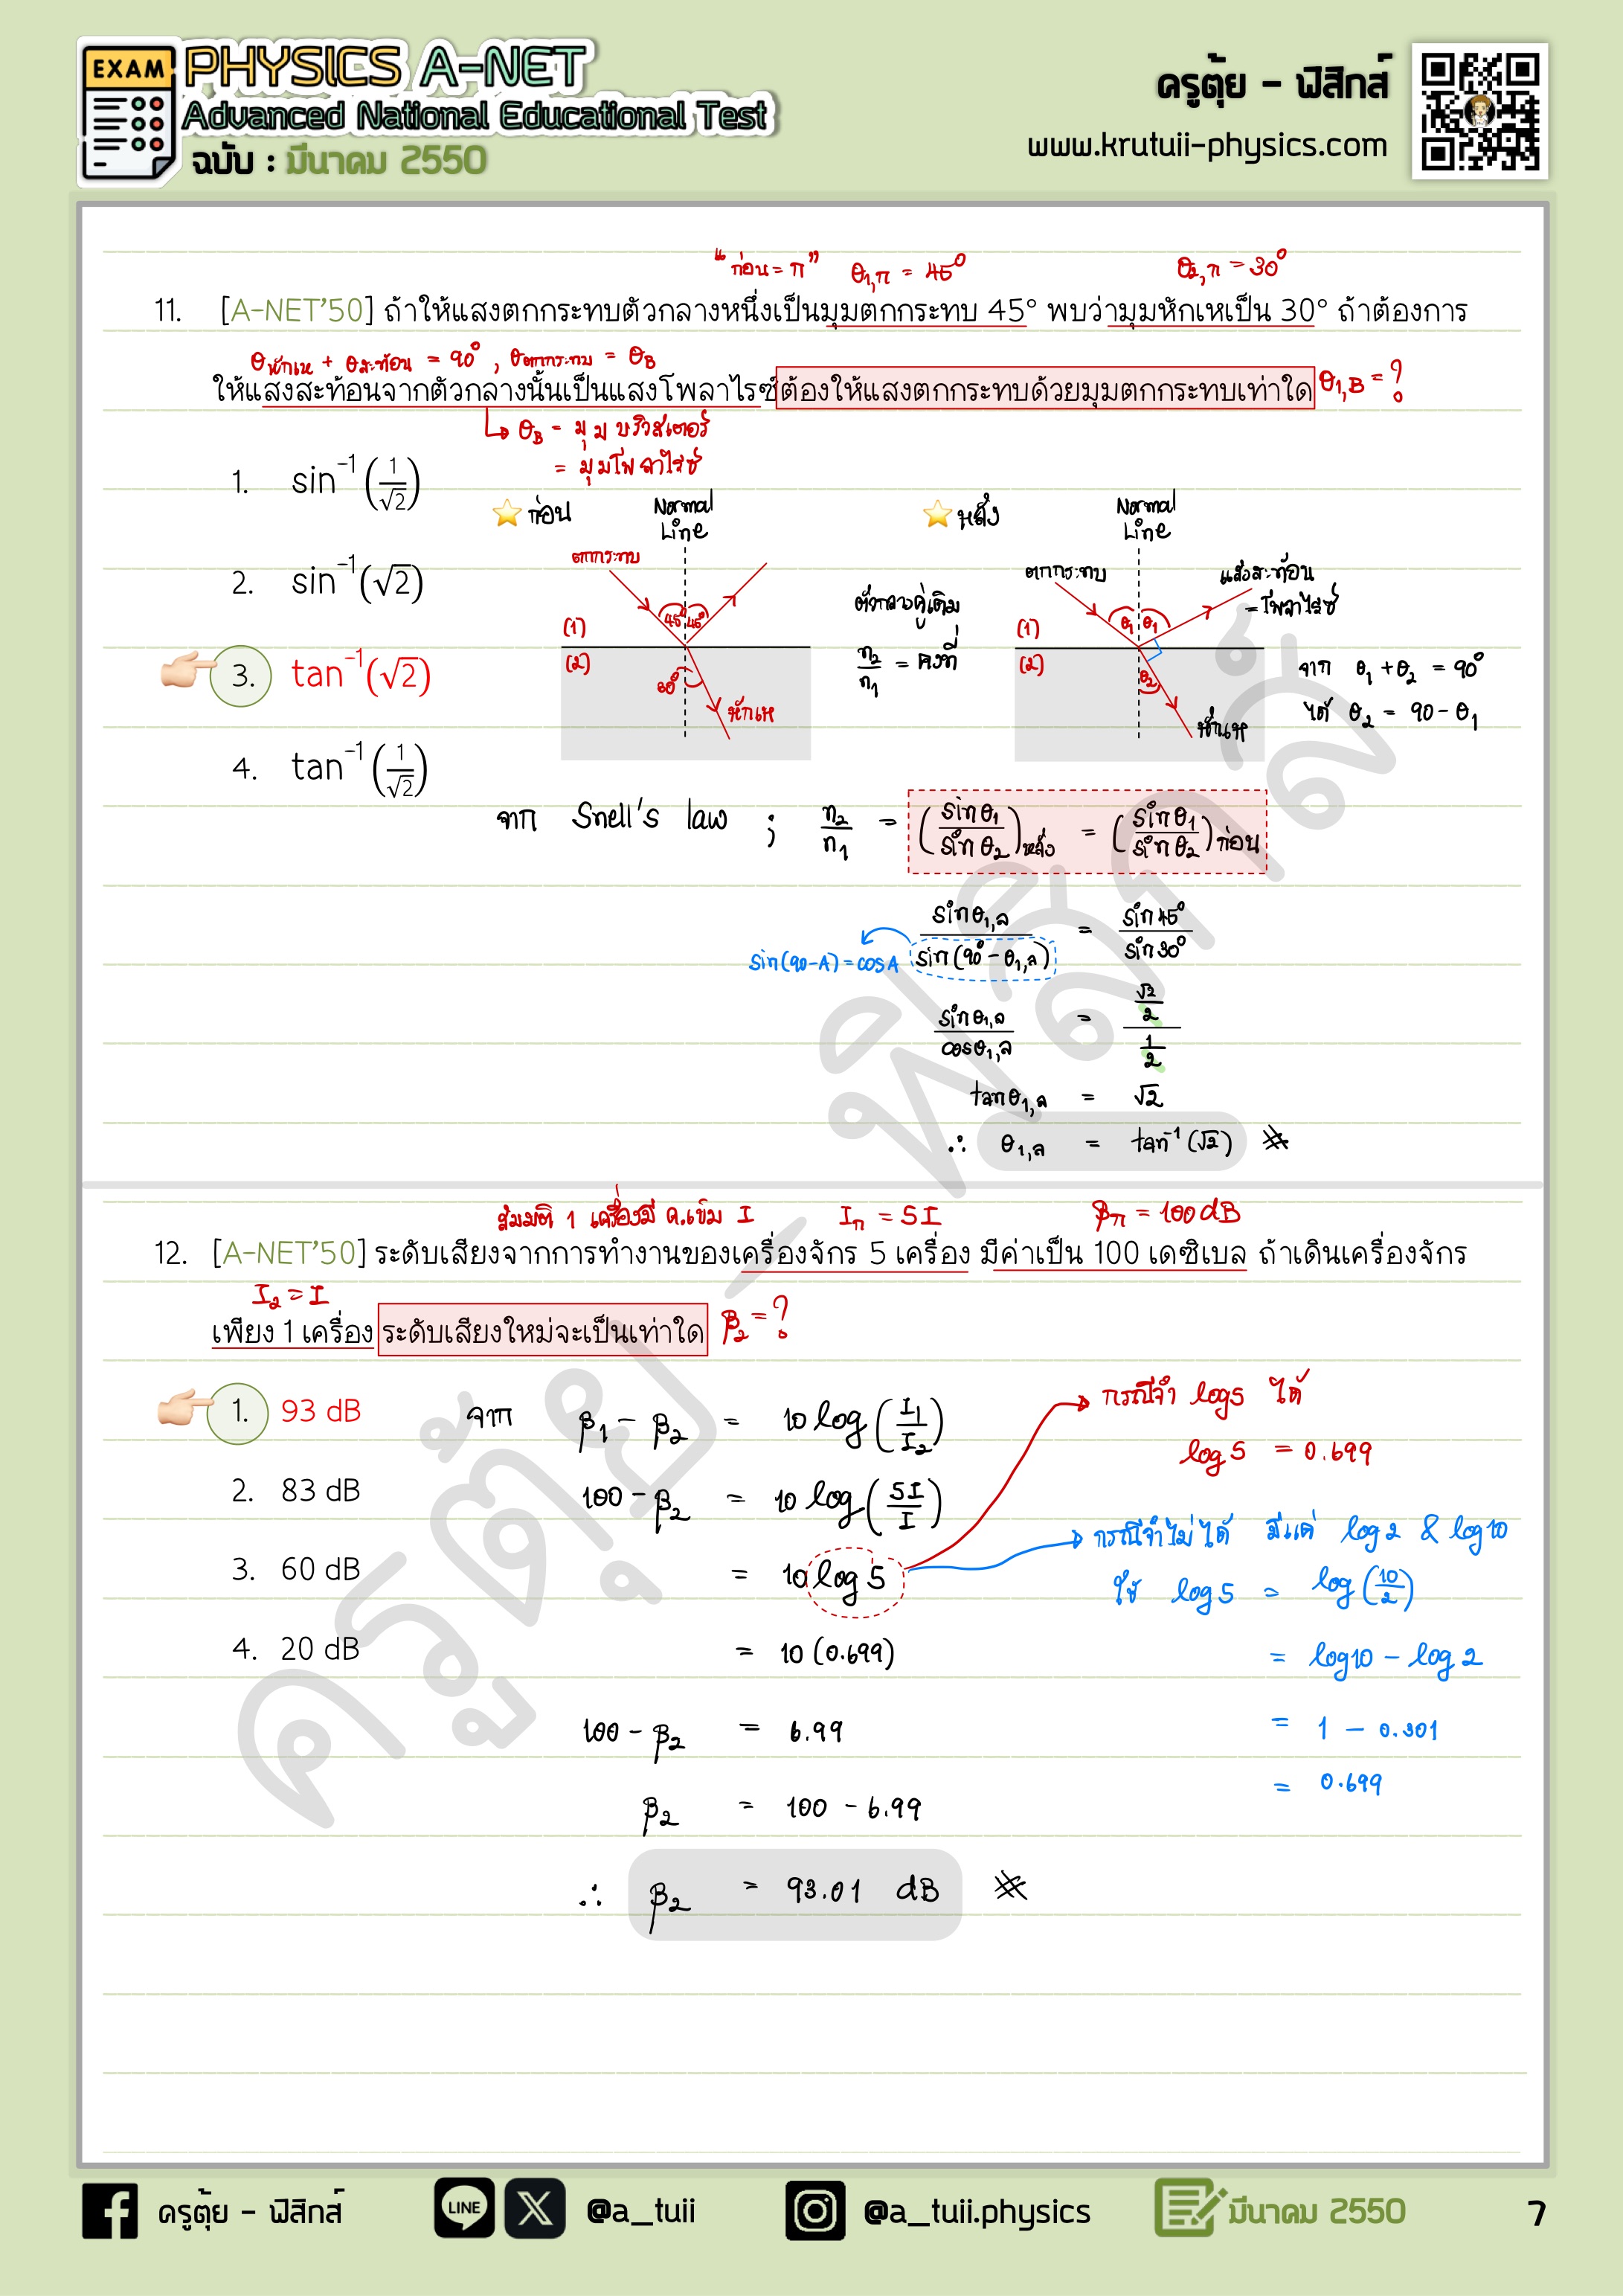 EXAM
PHYSICS A-NET
Advanced National Educational Test
ฉบับ : มีนาคม 2550
ครูตุ้ย - ฟิสิกส์
www.krutuii-physics.com
"ก่อน = ก" θ1,ก = 45° θ2,ก = 30°
11. [A-NET'50] ถ้าให้แสงตกกระทบตัวกลางหนึ่งเป็นมุมตกกระทบ 45° พบว่ามุมหักเหเป็น 30° ถ้าต้องการ
θหักเห + θสะท้อน = 90°, θตกกระทบ = θB
ให้แสงสะท้อนจากตัวกลางนั้นเป็นแสงโพลาไรซ์ต้องให้แสงตกกระทบด้วยมุมตกกระทบเท่าใด θ1,B = ?
θB = มุมบริวสเตอร์
= มุมโพลาไรซ์
1. sin⁻¹(1/√2)
2. sin⁻¹(√2)
3. tan⁻¹(√2)
4. tan⁻¹(1/√2)
ก่อน
Normal
Line
ตกกระทบ
45° 45°
(1)
(2)
30°
หักเห
ตัวกลางคู่เดิม
n2/n1 = คงที่
หลัง
Normal
Line
ตกกระทบ
แสงสะท้อน
= โพลาไรซ์
θ1 θ1
(1)
(2)
θ2
หักเห
จาก θ1 + θ2 = 90°
ได้ θ2 = 90 - θ1
จาก Snell's law ; n2/n1 = (sinθ1/sinθ2)หลัง = (sinθ1/sinθ2)ก่อน
sinθ1,ล/sin(90° - θ1,ล) = sin45°/sin30°
sin(90-A) = cosA
sinθ1,ล/cosθ1,ล = (√2/2)/(1/2)
tanθ1,ล = √2
∴ θ1,ล = tan⁻¹(√2) #
สมมติ 1 เครื่องมี ค.เข้ม I Iก = 5I βก = 100 dB
12. [A-NET'50] ระดับเสียงจากการทำงานของเครื่องจักร 5 เครื่อง มีค่าเป็น 100 เดซิเบล ถ้าเดินเครื่องจักร
I2 = I
เพียง 1 เครื่อง ระดับเสียงใหม่จะเป็นเท่าใด β2 = ?
1. 93 dB
2. 83 dB
3. 60 dB
4. 20 dB
จาก β1 - β2 = 10 log(I1/I2)
100 - β2 = 10 log(5I/I)
= 10 log 5
= 10 (0.699)
100 - β2 = 6.99
β2 = 100 - 6.99
∴ β2 = 93.01 dB #
กรณีจำ log5 ได้
log 5 = 0.699
กรณีจำไม่ได้ มีแค่ log 2 & log 10
ใช้ log 5 = log(10/2)
= log10 - log 2
= 1 - 0.301
= 0.699
ครูตุ้ย - ฟิสิกส์
ครูตุ้ย - ฟิสิกส์
LINE
@a_tuii
@a_tuii.physics
มีนาคม 2550
7